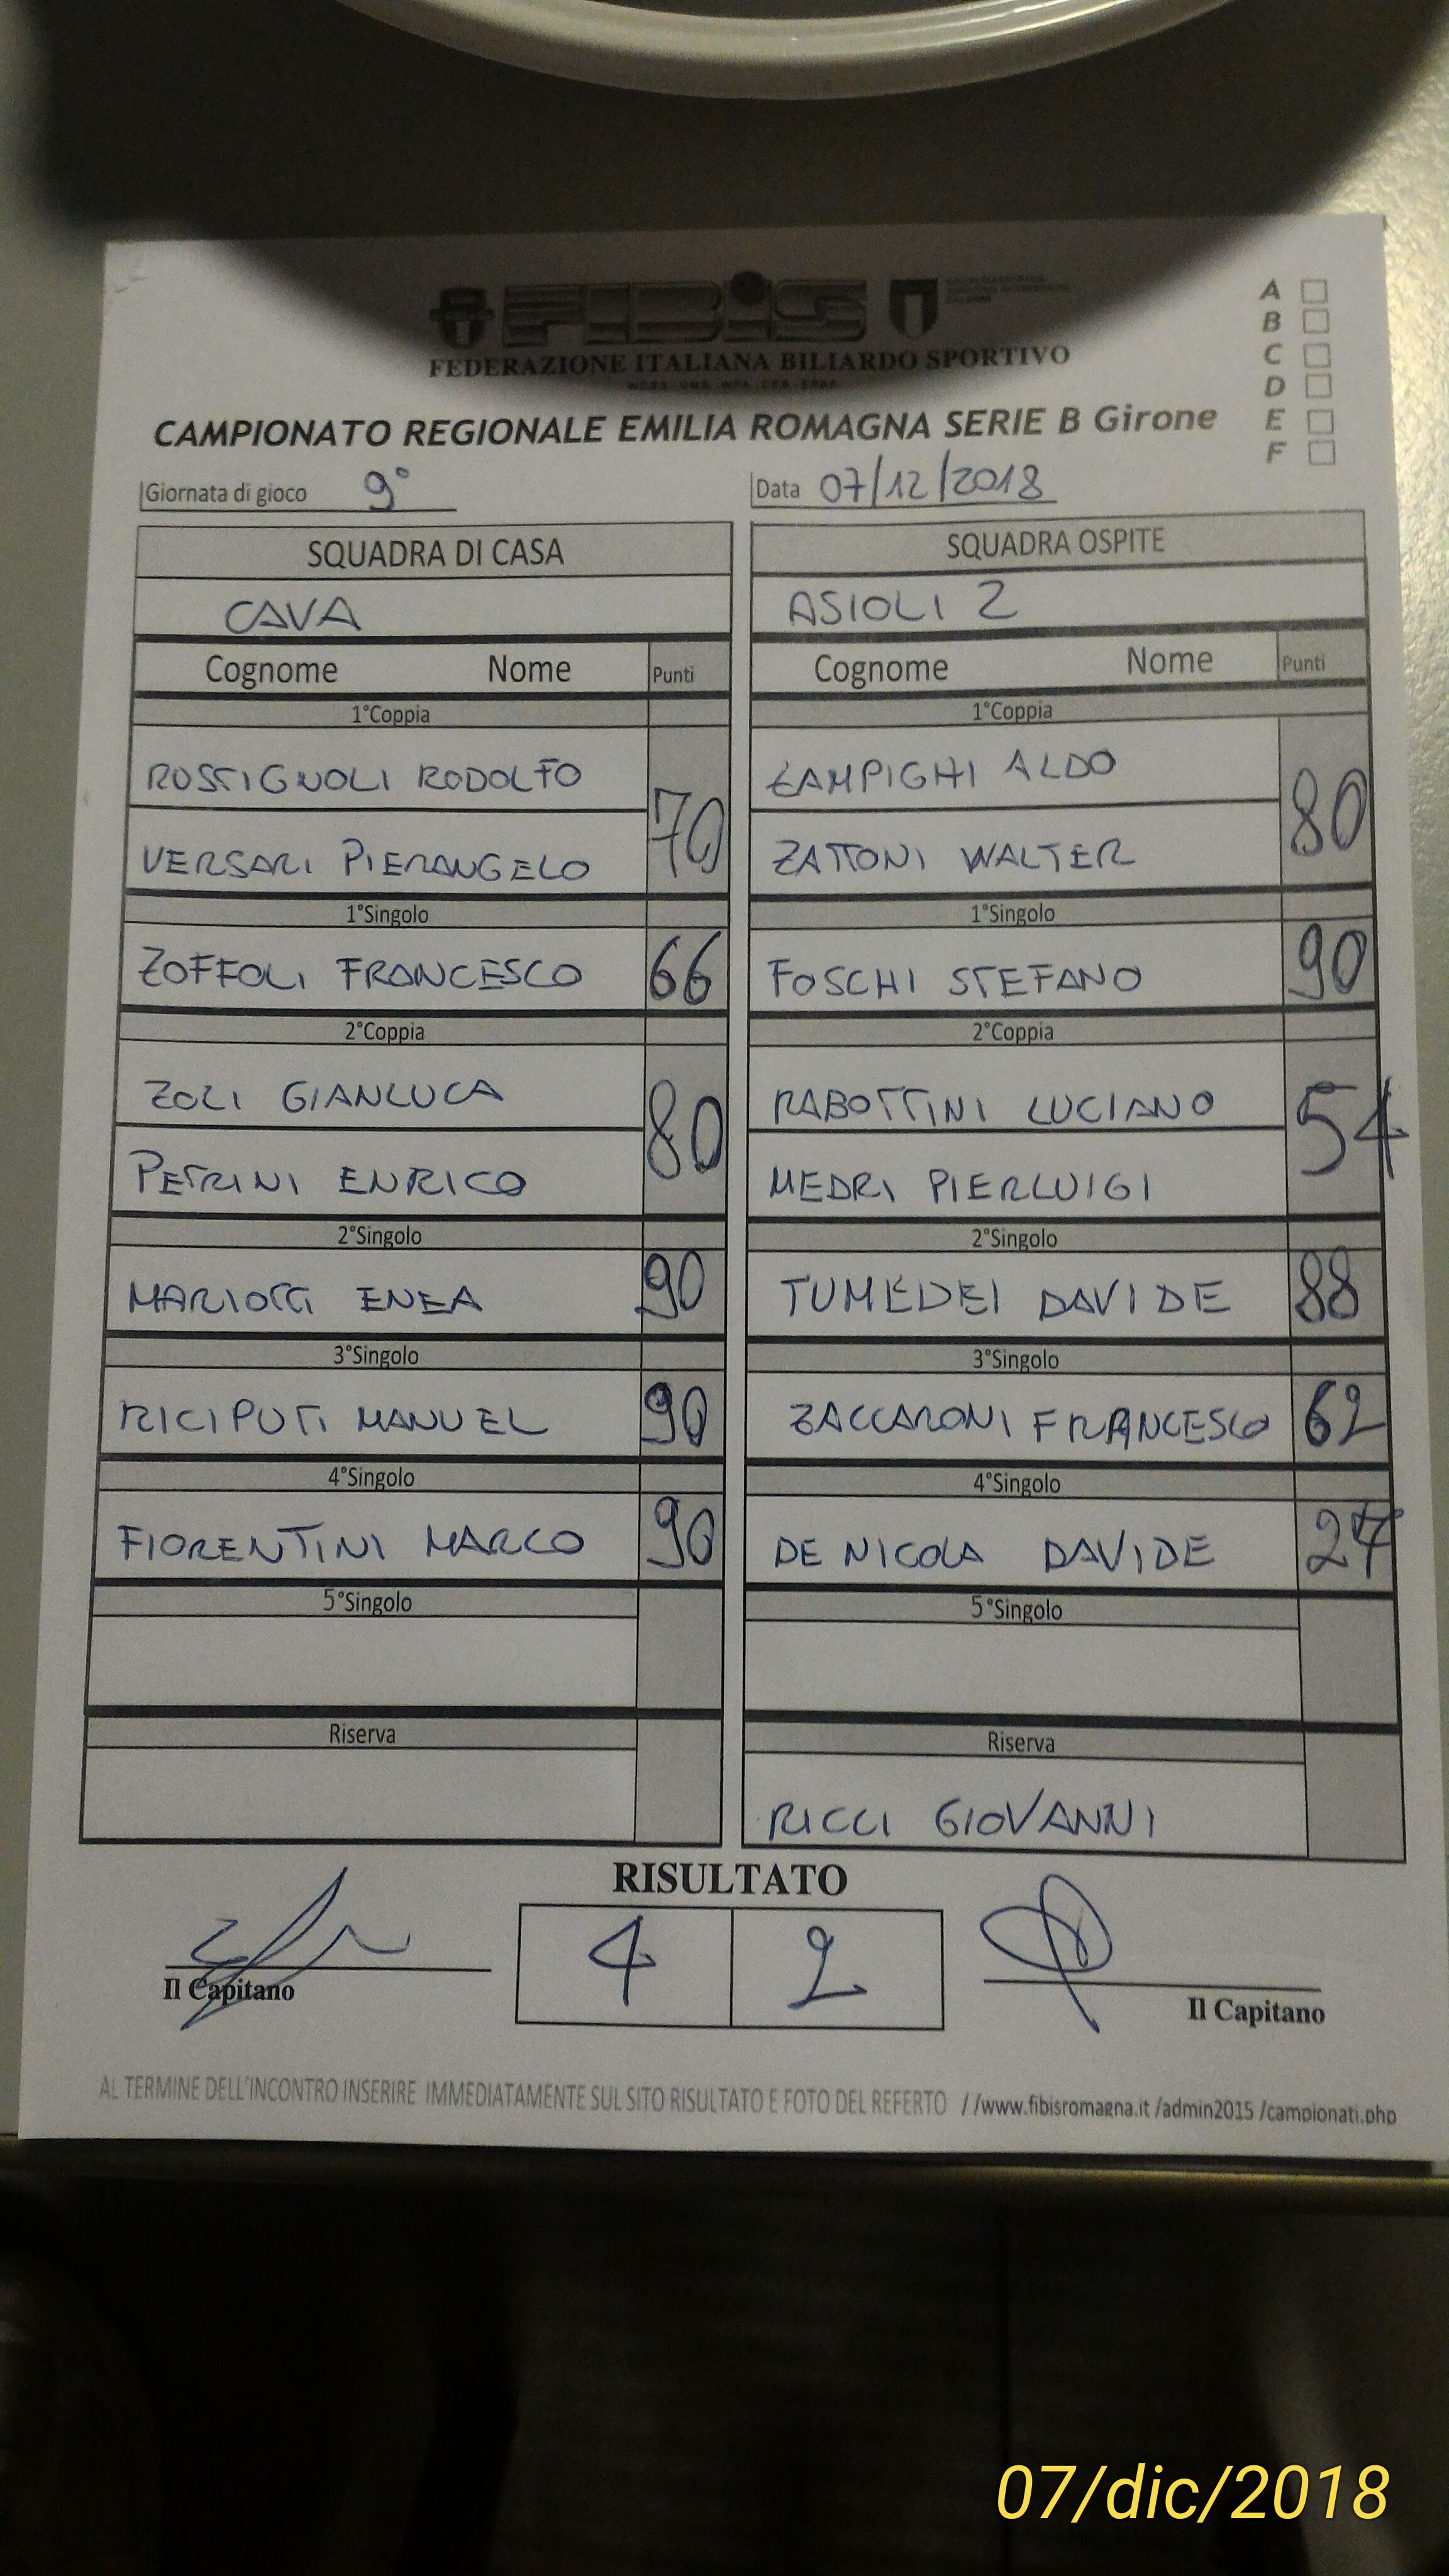 FIBiS
FEDERAZIONE ITALIANA BILIARDO SPORTIVO
A
B
C
D
E
F
CAMPIONATO REGIONALE EMILIA ROMAGNA SERIE B Girone
Giornata di gioco 9° Data 07/12/2018
SQUADRA DI CASA SQUADRA OSPITE
CAVA ASIOLI 2
Cognome Nome Punti Cognome Nome Punti
1°Coppia 1°Coppia
ROSSIGNOLI RODOLFO ZAMPIGHI ALDO
70 80
VERSARI PIERANGELO ZATTONI WALTER
1°Singolo 1°Singolo
ZOFFOLI FRANCESCO 66 FOSCHI STEFANO 90
2°Coppia 2°Coppia
ZOLI GIANLUCA RABOTTINI LUCIANO
80 54
PETRINI ENRICO MEDRI PIERLUIGI
2°Singolo 2°Singolo
MARIOTTI ENEA 90 TUMEDEI DAVIDE 88
3°Singolo 3°Singolo
RICIPUTI MANUEL 90 ZACCARONI FRANCESCO 62
4°Singolo 4°Singolo
FIORENTINI MARCO 90 DE NICOLA DAVIDE 27
5°Singolo 5°Singolo
Riserva Riserva
RICCI GIOVANNI
RISULTATO
4 2
Il Capitano Il Capitano
AL TERMINE DELL'INCONTRO INSERIRE IMMEDIATAMENTE SUL SITO RISULTATO E FOTO DEL REFERTO //www.fibisromagna.it /admin2015 /campionati.php
07/dic/2018